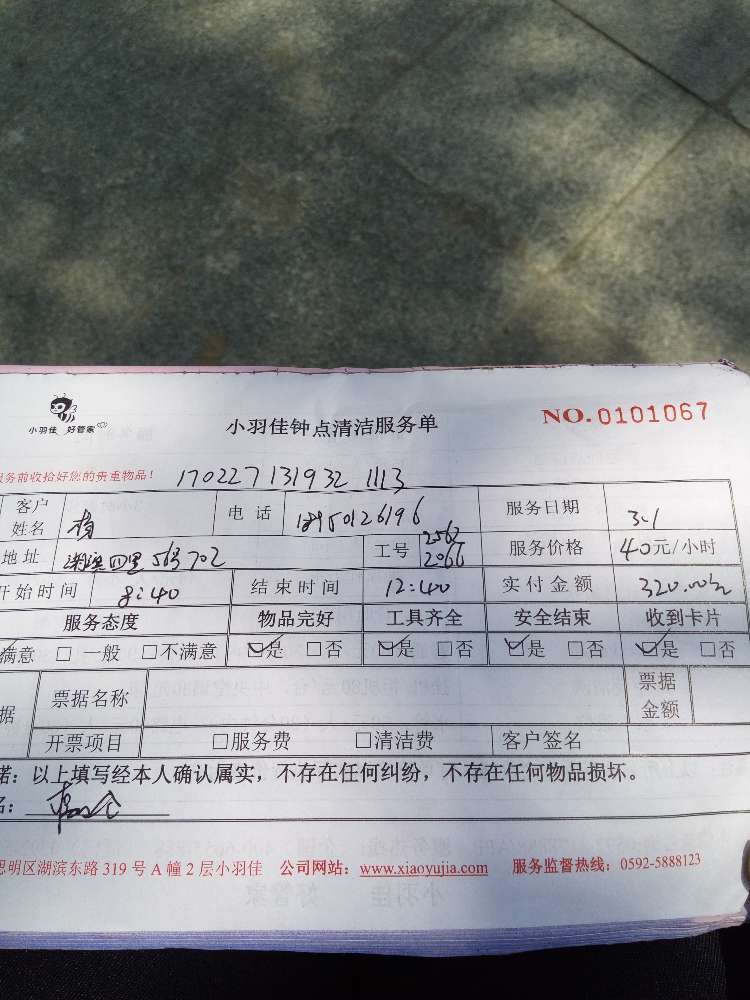 小羽佳 好管家
小羽佳钟点清洁服务单
NO.0101067
服务前收拾好您的贵重物品!
170227131932 1113
客户姓名 杨 电话 18950126196 服务日期 3.1
地址 四里 56号702 工号 2562 2066 服务价格 40元/小时
开始时间 8:40 结束时间 12:40 实付金额 320.00
服务态度 物品完好 工具齐全 安全结束 收到卡片
满意 □ 一般 □不满意 ☑是 □否 ☑是 □否 ☑是 □否 ☑是 □否
据 票据名称 票据金额
开票项目 □服务费 □清洁费 客户签名
诺:以上填写经本人确认属实,不存在任何纠纷,不存在任何物品损坏。
名:
思明区湖滨东路 319 号 A 幢 2 层小羽佳 公司网站:www.xiaoyujia.com 服务监督热线:0592-5888123